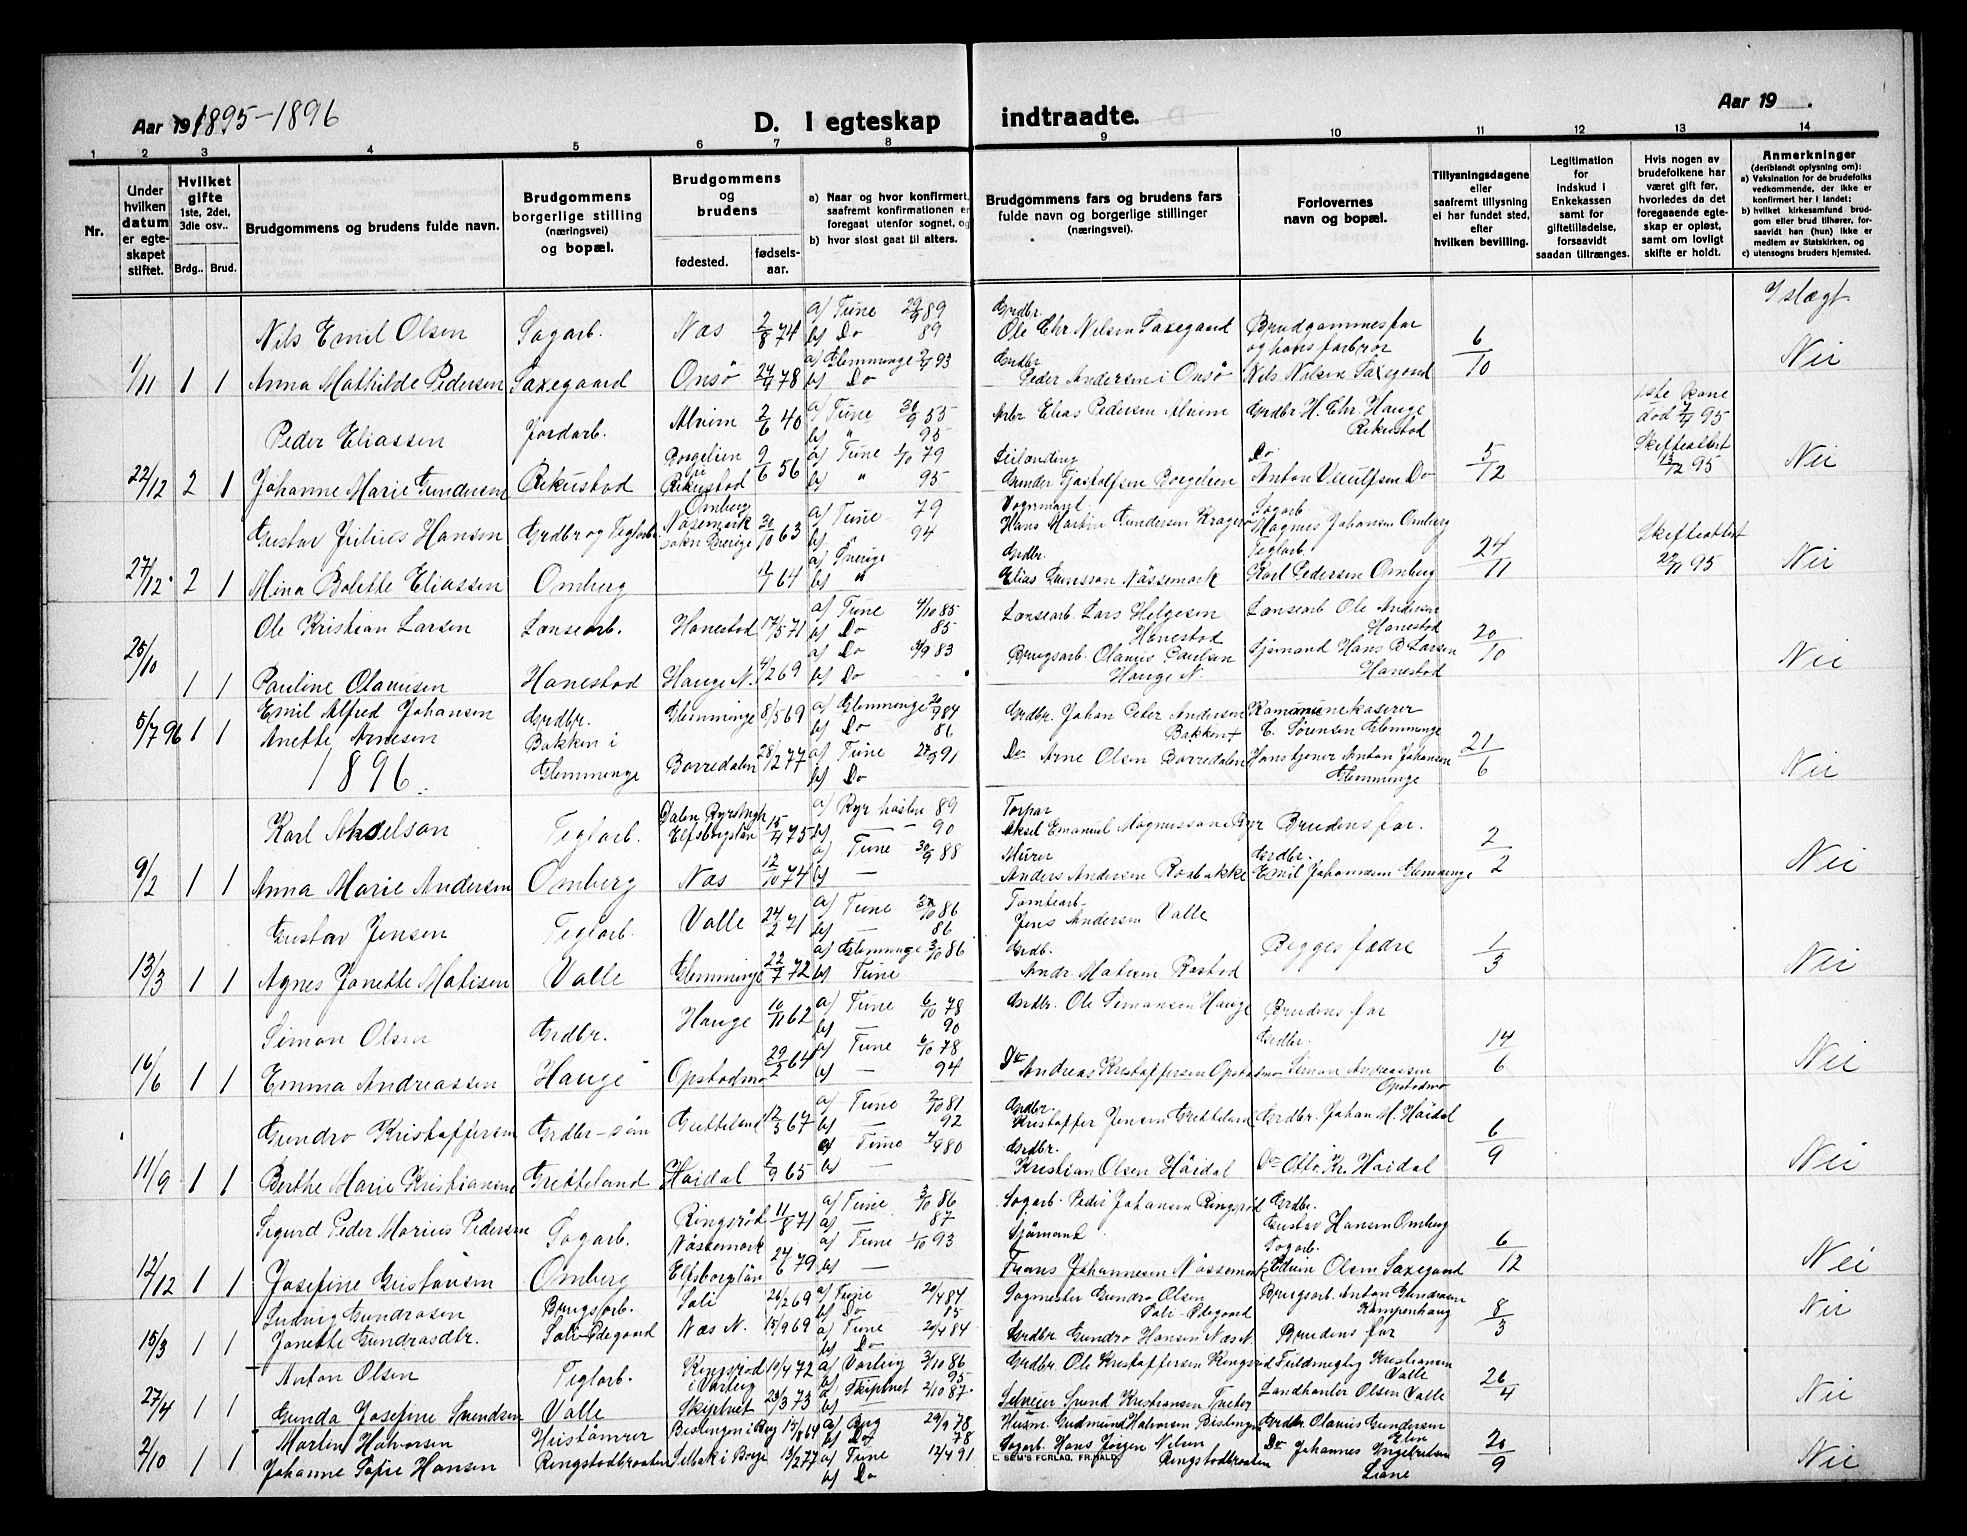 Aar 1895-1896
D. I egteskap indtraadte.
Aar 19 .
1 2 3 4 5 6 7 8 9 10 11 12 13 14
Nr.
Under hvilken datum er egteskapet stiftet.
Hvilket gifte 1ste, 2det, 3die osv..
Brdg..
Brud.
Brudgommens og brudens fulde navn.
Brudgommens borgerlige stilling (næringsvei) og bopæl.
Brudgommens og brudens
fødested.
fødselsaar.
a) Naar og hvor konfirmert, saafremt konfirmationen er foregaat utenfor sognet, og
b) hvor sidst gaat til alters.
Brudgommens fars og brudens fars fulde navn og borgerlige stillinger (næringsvei).
Forlovernes navn og bopæl.
Tillysningsdagene eller saafremt tillysning ei har fundet sted, efter hvilken bevilling.
Legitimation for indskud i Enkekassen samt for giftetilladelse, forsaavidt saadan tiltrænges.
Hvis nogen av brudefolkene har været gift før, hvorledes da det foregaaende egteskap er opløst, samt om lovligt skifte er holdt.
Anmerkninger (deriblandt oplysning om):
a) Vaksination for de brudefolks vedkommende, der ikke er konfirmert her i landet;
b) hvilket kirkesamfund brudgom eller brud tilhører, forsaavidt han (hun) ikke er medlem av Statskirken, og
c) utensogns bruders hjemsted.
I slægt
Nils Emil Olsen Sagarb. Næs 2/8 74 a) Tune 29/9 89 Grdbr. Ole Chr Nilsen Saxegaard Brudgommes far
b) Do 89 og hans farbror 6/10
1/11 1 1 Anna Mathilde Pedersen Saxegaard Onsø 24/9 78 a) Glemminge 93 Grdbr Peder Andersen i Onsø Nils Nilsen Saxegaard Nei
b) Do
Peder Eliassen Jordarb. Alvim 2/6 40 a) Tune 30/9 55 Arbr Elias Pedersen Alvim Grdbr H. Chr. Hauge Rekustad 1ste kone død 95
b) " 95
22/12 2 1 Johanne Marie Gundersen Rekustad Borgelien Rekustad 9/6 56 a) Tune 1/10 79 Gunder Borgelien Do Anton Do 5/12 Skifteattest 13/12 95 Nei
b) " 95
Gustav Julius Hansen Grdbr og Teglarb. Omberg 30/10 63 a) Tune 79 Vognmand Hans Martin Gundersen Kragerø Sagarb Magnus Johansen Omberg Skifteattest
b) " 94
27/12 2 1 Mina Bolette Eliassen Omberg Nössemark sokn Sverige 64 a) Sverige Grdbr. Elias Nössemark Teglarb. Karl Pedersen Omberg 24/11 95 Nei
b) "
Ole Kristian Larsen Lænsearb. Hanestad 17/5 71 a) Tune 4/10 85 Lænsearb. Lars Helgesen Hanestad Lænsearb Ole Andersen Hanestad
b) Do 85
25/10 1 1 Pauline Olausen Hanestad Hauge N. 69 a) Do 83 Brugsarb. Olaus Paulsen Hauge N. Sjømand Hans B Larsen Hanestad 20/10 Nei
b) Do
5/7 96 1 1 Emil Alfred Johansen Grdbr. Glemminge 8/5 69 a) Glemminge 84 Grdbr. Johan Peter Andersen Bakken E. Sørensen Glemminge
b) Do 86
Anette Arnesen Bakken i Glemminge Borredalen 28/12 77 a) Tune 27/9 91 Do Arne Olsen Borredalen Anton Johansen Glemminge 21/6 Nei
b) Do
1896.
Karl Akselson Teglarb. Dalen Elfsborgslän 15/4 75 a) Ryr 89 Torpar Aksel Emanuel Magnusson Ryr Brudens far. 2/2
b) — 90
9/2 1 1 Anna Marie Andersen Omberg Næs 12/10 74 a) Tune 30/9 88 Murer Anders Andersen Rosbakke Grdbr. Emil Johansen Glemminge Nei
b) —
Gustav Jensen Teglarb. Valle 24/2 71 a) Tune 86 Tomtearb. Jens Andersen Valle Begges fædre 1/3
b) — 86
13/3 1 1 Agnes Janette Matisen Valle Glemminge 22/7 72 a) Glemminge 3/10 86 Grdb. Andr Matisen Rostad Nei
b) Tune
Simon Olsen Grdbr. Hauge 10/11 62 a) Tune 6/10 78 Grdbr. Ole Simonsen Hauge Brudens far
b) — 90
16/6 1 1 Emma Andreassen Hauge Opstadmo 29/2 64 a) Tune 6/10 78 Do Andreas Kristoffersen Opstadmo Grdbr. Simon Andreassen Opstadmo 14/6 Nei
b) — 94
Gundro Kristoffersen Grdbr-søn Gretteland 12/3 67 a) Tune 2/10 81 Grdbr. Kristoffer Jensen Gretteland Grdbr. Johan M. Häidal
b) — 92
11/9 1 1 Berthe Marie Kristiansen Gretteland Haidal 2/9 65 a) Tune 80 Grdbr. Kristian Olsen Häidal Do Otto Kr. Haidal 6/9 Nei
b) —
Sigurd Peder Marius Pedersen Sagarb. Ringsrød 11/8 71 a) Tune 3/10 86 Sagarb. Peder Johansen Ringsrød Grdbr. Gustav Hansen Omberg
a) — 87
12/12 1 1 Josefine Gustavsen Omberg Nössemark Elfsborgslän 24/6 79 a) Tune 1/10 93 Sjømand Frans Johannesen Nössemark Sagarb. Edvin Olsen Saxegaard 6/12 Nei
b) —
Ludvig Gundrosen Brugsarb. Soli 26/2 69 a) Tune 20/4 84 Sagmester Gundro Olsen Soli-Ødegaard Brugsarb. Anton Gundrosen Kampenhaug
b) Do
15/3 1 1 Janette Gundrosdtr. Soli-Ødegaard Næs N. 15/9 69 a) Tune 20/4 84 Grdbr Gundro Hansen Næs N. Brudens far 8/3 Nei
b) Do
Anton Olsen Teglarb. Ringsrød i Varteig 10/4 72 a) Varteig 3/10 86 Grdbr Ole Kristoffersen Ringsrød Fuldmegtig Kristiansen Valle
b) 95
27/4 1 1 Gunda Josefine Svendsen Valle Skiptvet 23/3 73 a) Skiptvet 2/10 87 Svend Kristiansen Landhanler Olsen Valle 26/4 Nei
b) —
2/10 1 1 Martin Halvorsen Hustømrer Bislingen i Rygge 15/8 64 a) Ryg 29/9 78 Husm. Gudmund Halvorsen Bislingen Grdbr. Olaus Gundersen Elin
b) Do 78
Johanne Sofie Hansen Ringstadbraaten Selbak i Borge 13/2 77 a) Tune 12/4 91 Sagarb. Hans Jørgen Nilsen Ringstadbraaten Do Johannes Ingebretsen Liane 20/9 Nei
b) Do
E. SEM'S FORLAG, FR.HALD.